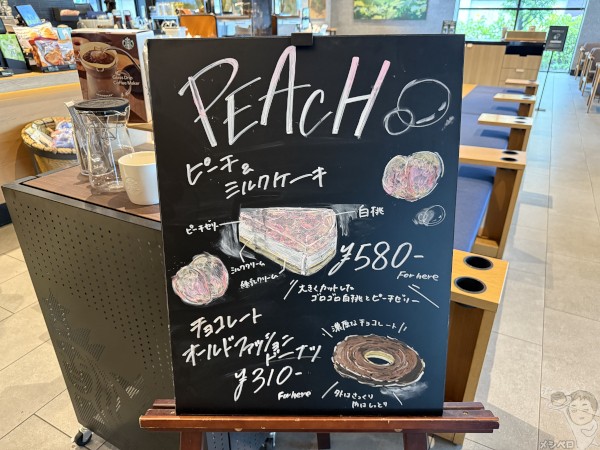 PEACH
ピーチ&
ミルクケーキ
ピーチゼリー
白桃
ミルククリーム
練乳クリーム
¥580-
For here
大きくカットした
ゴロゴロ白桃とピーチゼリー
チョコレート
オールドファッション
ドーナツ
¥310-
For here
濃厚なチョコレート
外はさっくり
内はしっとり
STARBUCKS
メシペロ